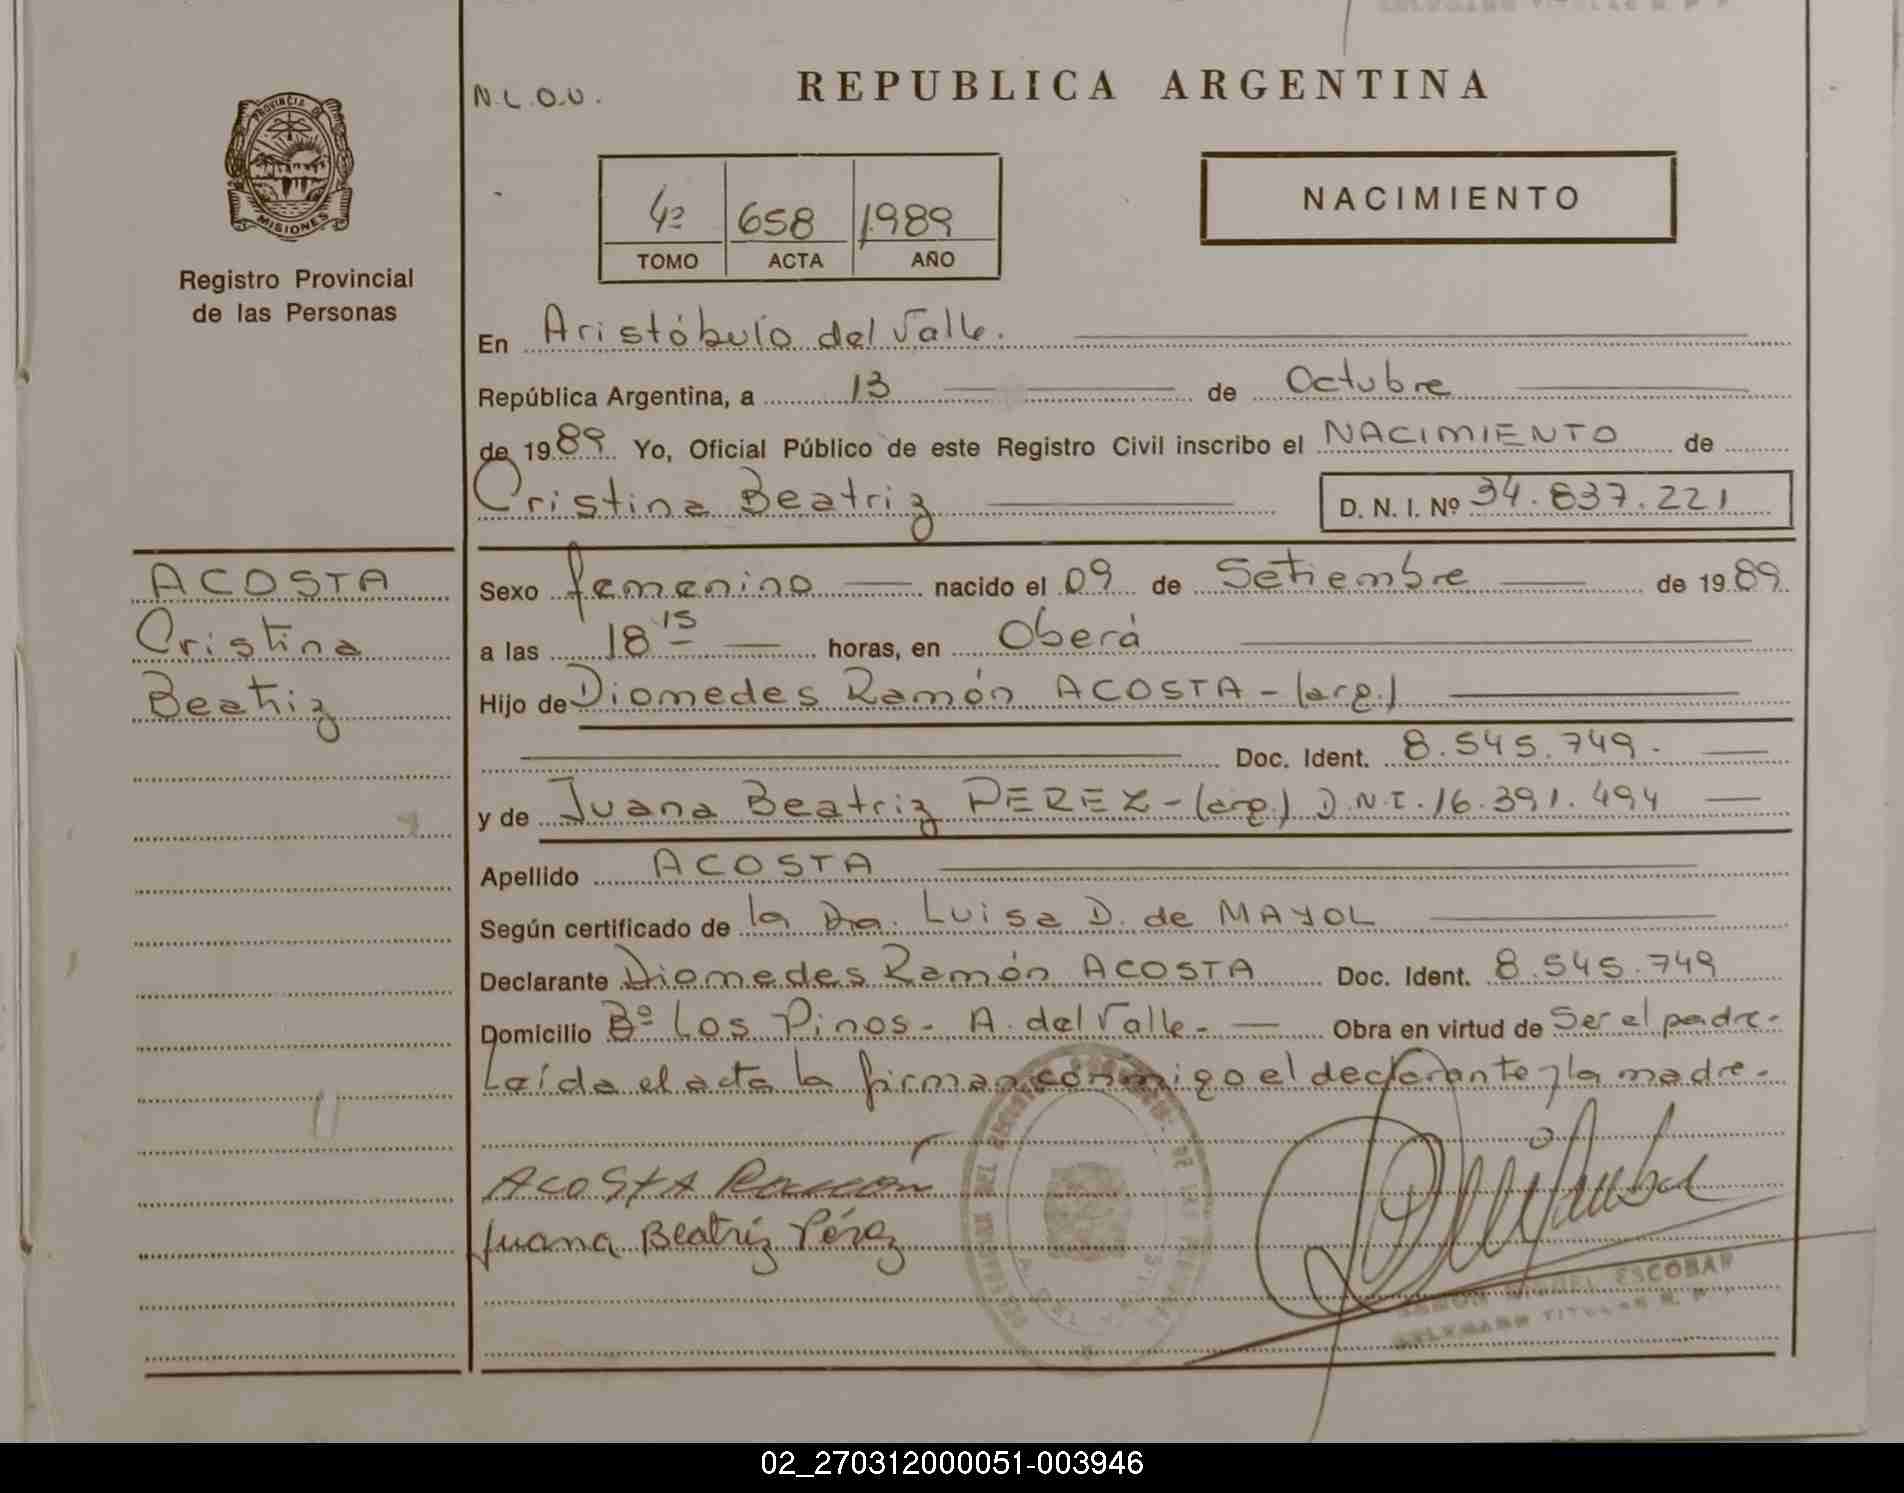 N.L.O.U.
REPUBLICA ARGENTINA
PROVINCIA DE
MISIONES
Registro Provincial
de las Personas
4º 658 1989
TOMO ACTA AÑO
NACIMIENTO
En Aristóbulo del Valle.
República Argentina, a 13 de Octubre
de 1989 Yo, Oficial Público de este Registro Civil inscribo el NACIMIENTO de
Cristina Beatriz D. N. I. Nº 34.837.221
ACOSTA
Cristina
Beatriz
Sexo femenino nacido el 09 de Setiembre de 1989
a las 18 15 horas, en Oberá
Hijo de Diomedes Ramón ACOSTA - (arg.)
Doc. Ident. 8.545.749.
y de Juana Beatriz PEREZ - (arg.) D.N.I. 16.391.494
Apellido ACOSTA
Según certificado de la Dra. Luisa D. de MAYOL
Declarante Diomedes Ramón ACOSTA Doc. Ident. 8.545.749
Domicilio Bº Los Pinos - A. del Valle - Obra en virtud de Ser el padre -
Leída el acta la firman conmigo el declarante y la madre -
Acosta Ramón
Juana Beatriz Pérez
RAMON MIGUEL ESCOBAR
DELEGADO TITULAR R. P.
02_270312000051-003946